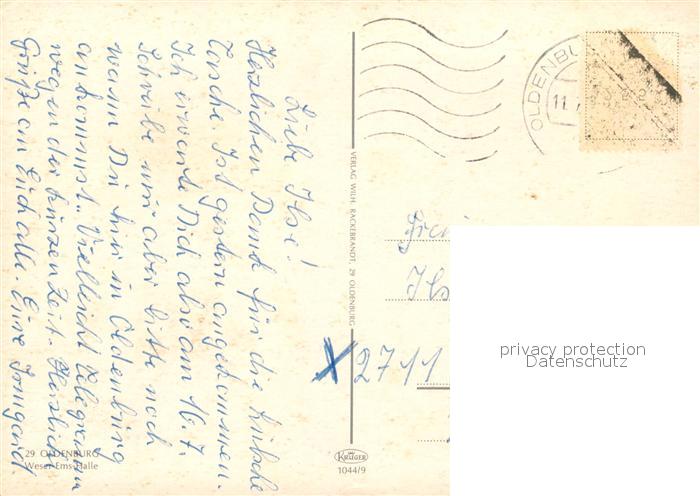 Liebe Ilse!
Herzlichen Dank für die hübsche
Tasche. Ist gestern angekommen.
Ich erwarte Dich also am 16.7.
Schreibe mir aber bitte noch
wann Du hier in Oldenburg
ankommst. Vielleicht Telegramm
wegen der kurzen Zeit. Herzliche
Grüße an Euch alle. Eure Irmgard
29 OLDENBURG
Weser-Ems-Halle
VERLAG WILH. RACKEBRANDT, 29 OLDENBURG
KRÜGER
1044/9
OLDENBU
11.
Ils
X2711
privacy protection
Datenschutz